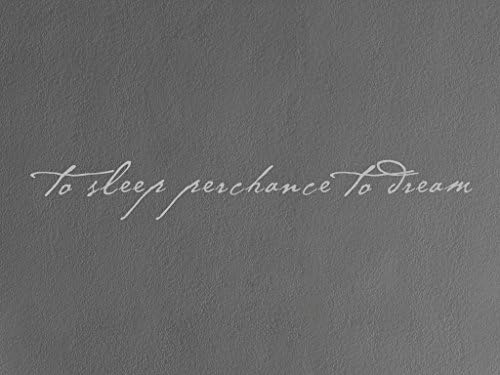 to sleep perchance to dream